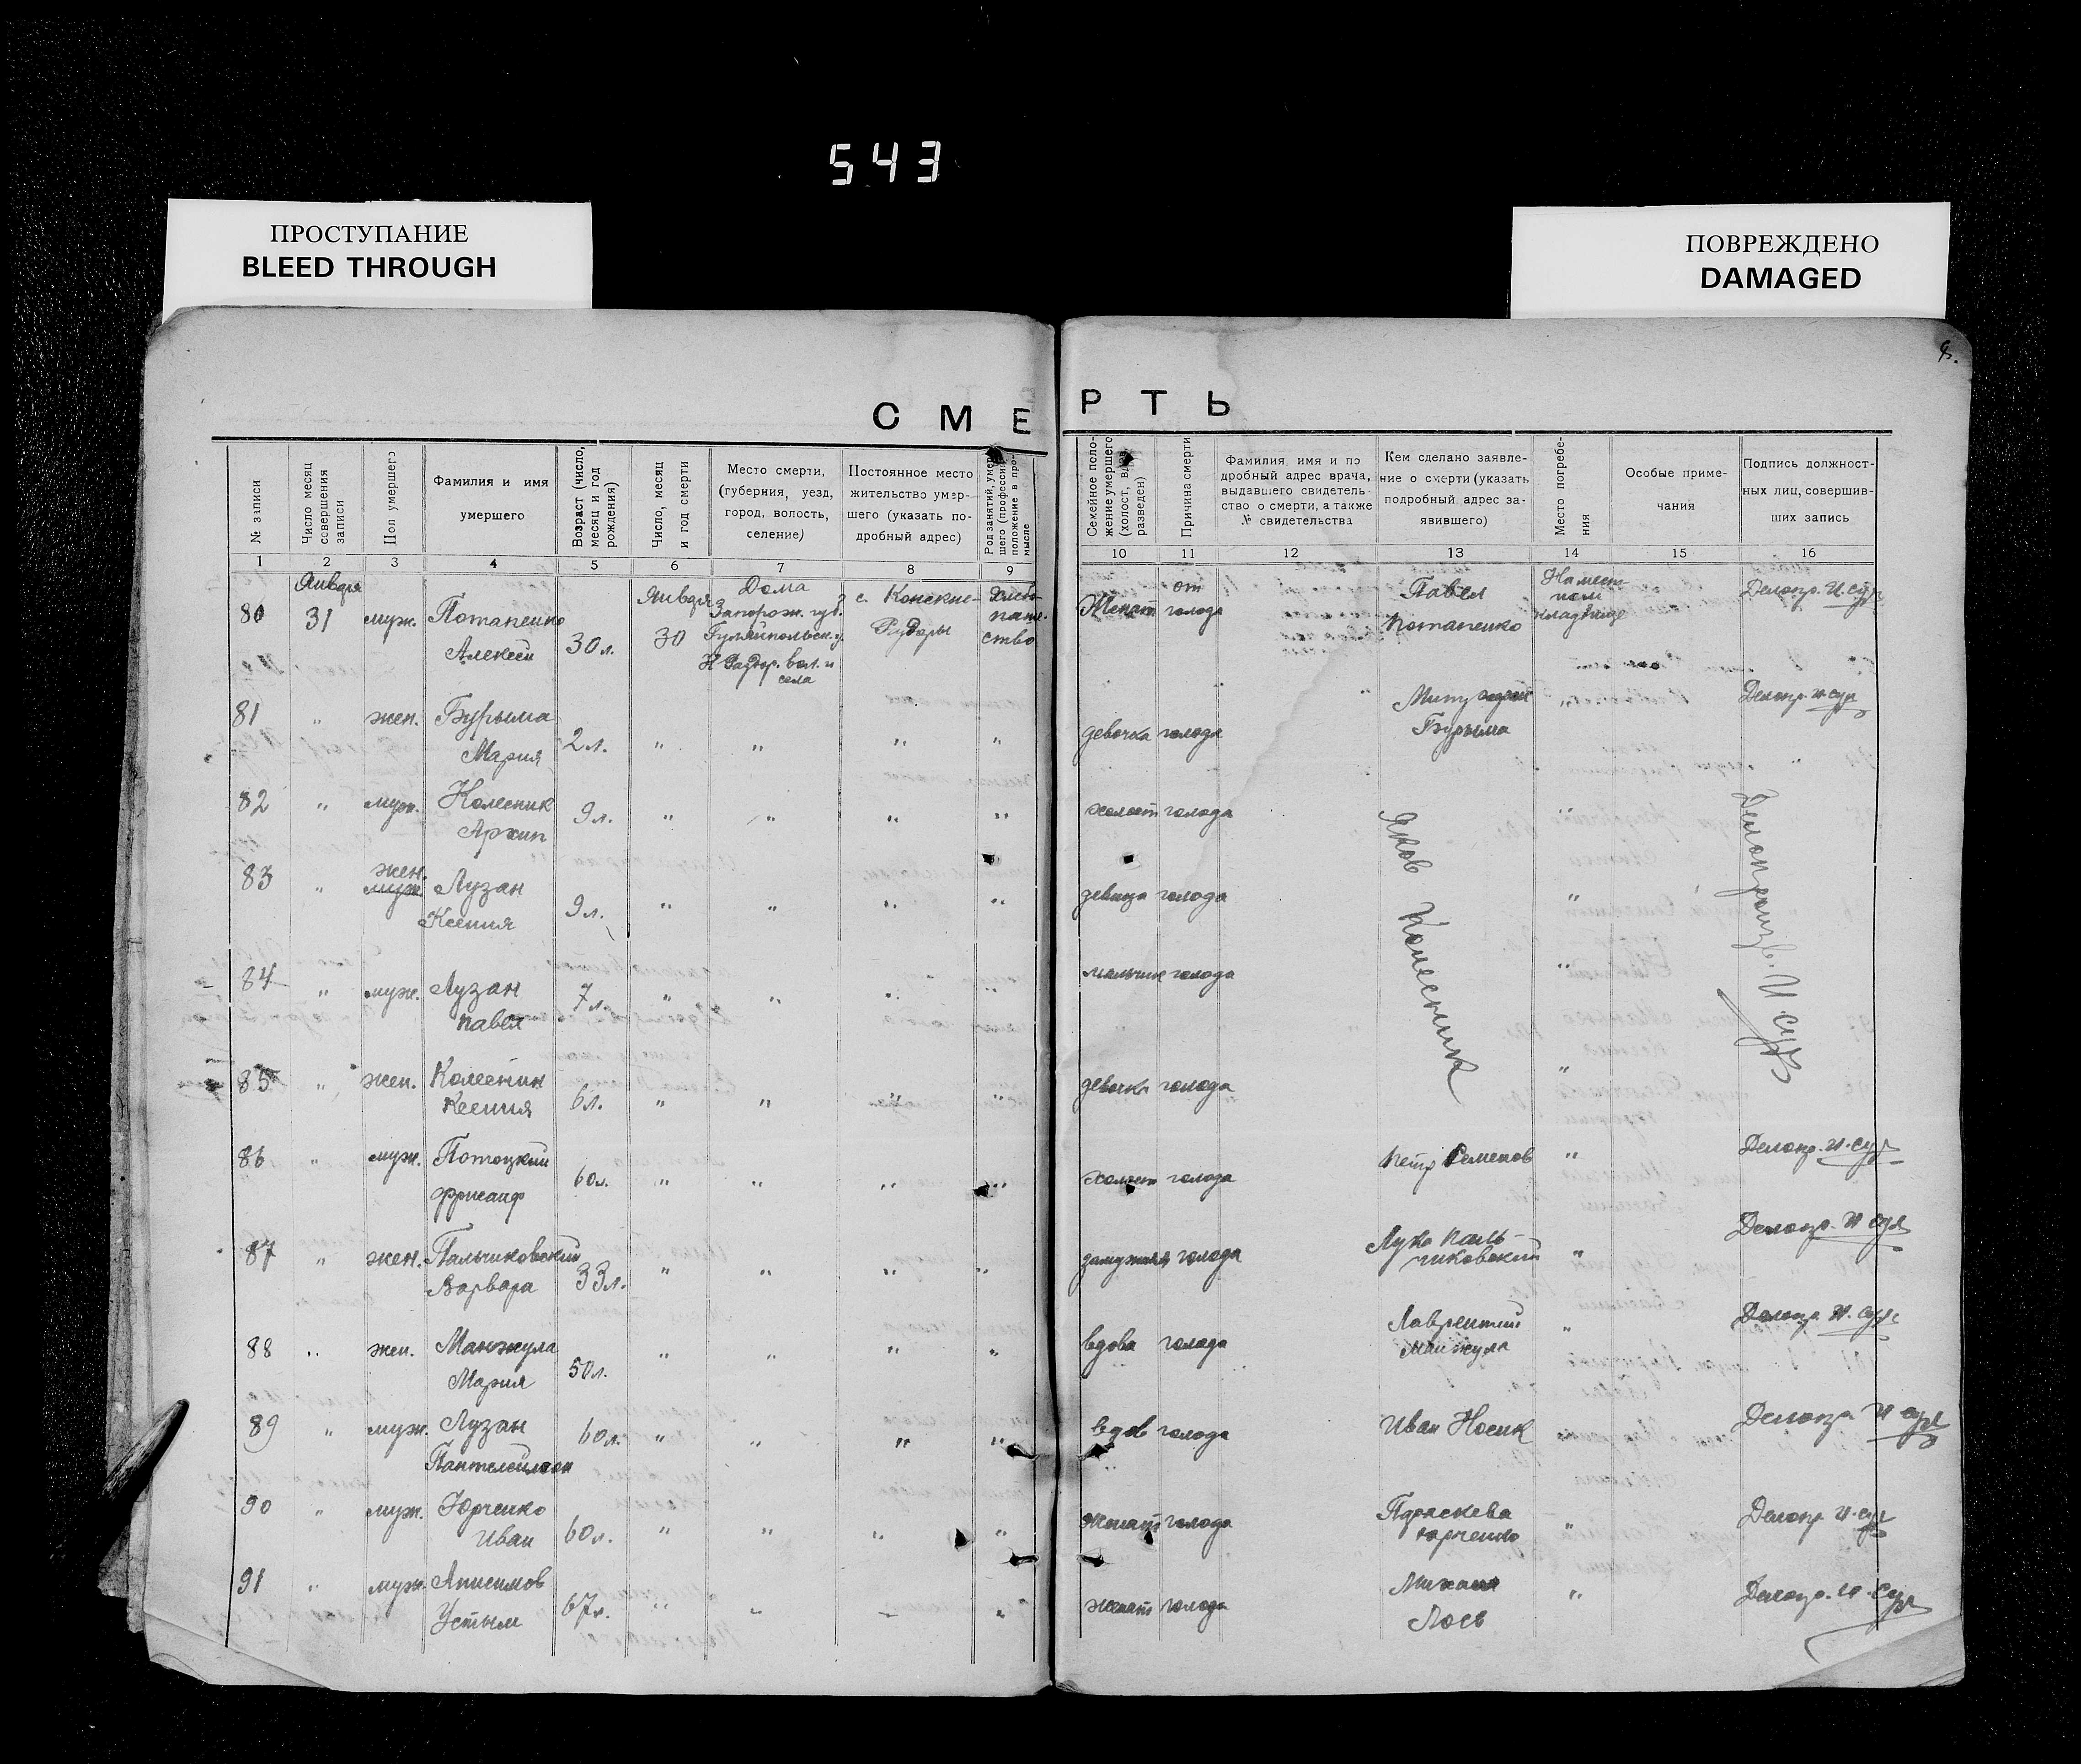 543
ПРОСТУПАНИЕ
BLEED THROUGH
ПОВРЕЖДЕНО
DAMAGED
СМЕРТЬ
№ записи
Число месяц совершения записи
Пол умершего
Фамилия и имя умершего
Возраст (число, месяц и год рождения)
Число, месяц и год смерти
Место смерти, (губерния, уезд, город, волость, селение)
Постоянное место жительство умершего (указать подробный адрес)
Род занятий, умершего (профессия положение в промысле
Семейное положение умершего (холост, вдов разведен)
Причина смерти
Фамилия, имя и подробный адрес врача, выдавшего свидетельство о смерти, а также № свидетельства
Кем сделано заявление о смерти (указать подробный адрес заявившего)
Место погребения
Особые примечания
Подпись должностных лиц, совершивших запись
1 2 3 4 5 6 7 8 9 10 11 12 13 14 15 16
Января Января Дома от Павел На мест-
80 31 муж. Потапенко 30 Запорож. губ. с. Конские- Женат голода ном Делопр.
Алексей 30 л. Гуляйпольск. у. Раздоры ство Потапенко кладбище
Н Раздор. вол. и
села
81 " жен. Бурыма " Делопр.
Мария 2 л. " " " " девочка голода Бурыма
82 " муж. Колесник 9 л. " " " " холост голода "
Архип
83 " жен. муж. Лузан 9 л. " " " " девица голода "
Ксения
84 " муж. Лузан 7 л. " " " " мальчик голода "
Павел
85 " жен. Колесник 6 л. " " " " девочка голода "
Ксения
Яков Колесник
Делопроизв.
86 " муж. Потоцкий 60 л. " " " " холост голода Петр Семенов " Делопр.
87 " жен. Пальчиковский 33 л. " " " " замужняя голода Лука Паль- " Делопр.
Варвара чиковский
88 " жен. Манжула 50 л. " " " " вдова голода Лаврентий " Делопр.
Мария Манжула
89 " муж. Лузан 60 л. " " " " вдов голода Иван Носик " Делопр.
Пантелеймон
90 " муж. Юрченко 60 л. " " " " женат голода Параскева " Делопр.
Иван Юрченко
91 " муж. Анисимов 67 л. " " " " женат голода Михаил " Делопр.
Устым Лось